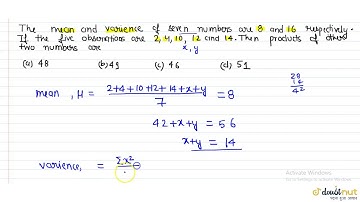 The mean and varience of seven numbers are 8 and 16 respectively.
If the five observations are 2, 4, 10, 12 and 14. Then products of other
two numbers are x, y
(a) 48 (b) 49 (c) 46 (d) 51
28
14
42
mean , M = 2+4+10+12+14+x+y / 7 = 8
42+x+y = 56
x+y = 14
varience, = Σx²
Activate Windows
doubtnut